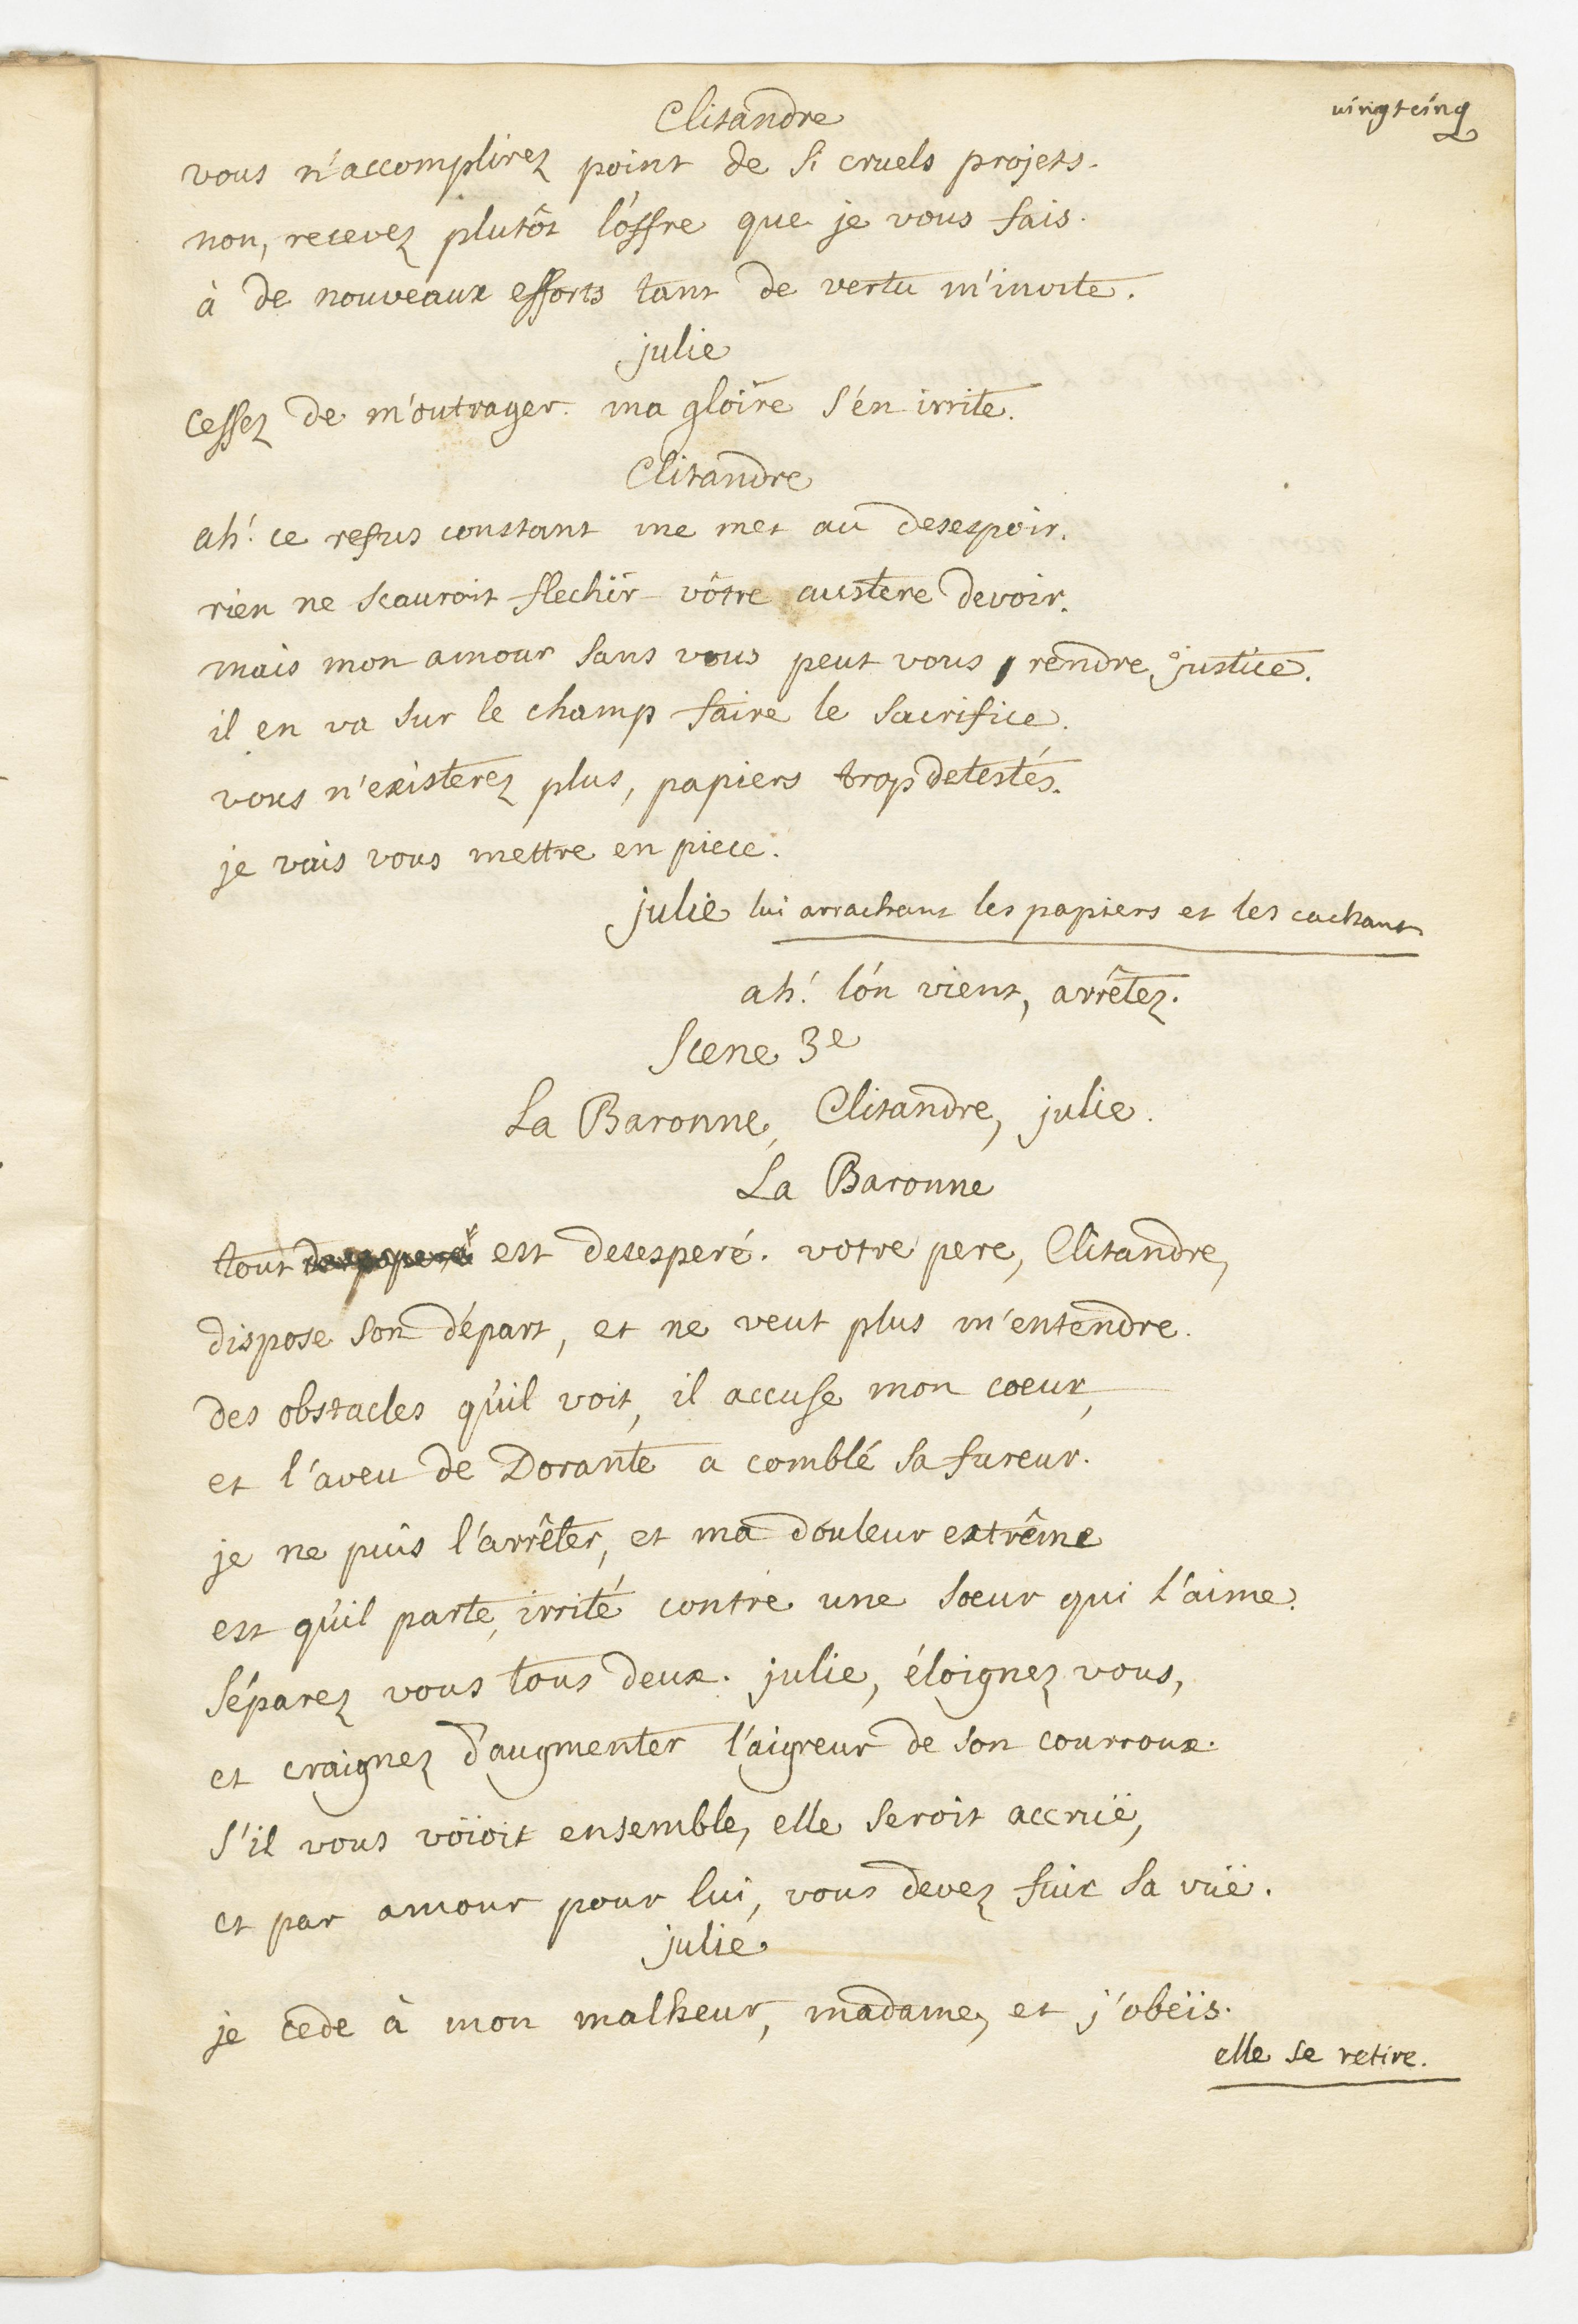 vingtcinq
Clitandre
vous n'accomplirez point de si cruels projets.
non, recevez plutôt l'offre que je vous fais.
à de nouveaux efforts tant de vertu m'invite.
julie
cessez de m'outrager. ma gloire s'en irrite.
Clitandre
ah! ce refus constant me met au desespoir.
rien ne scauroit flechir vôtre austere devoir.
mais mon amour sans vous peut vous rendre justice.
il en va sur le champ faire le sacrifice.
vous n'existerez plus, papiers trop detestés.
je vais vous mettre en piece.
julie lui arrachant les papiers et les cachant
ah! l'on vient, arrêtez.
Scene 3e
La Baronne, Clitandre, julie.
La Baronne
tout est desesperé. votre pere, Clitandre,
dispose son départ, et ne veut plus m'entendre.
des obstacles qu'il voit, il accuse mon coeur,
et l'aveu de Dorante a comblé sa fureur.
je ne puis l'arrêter, et ma douleur extrême
est qu'il parte, irrité contre une soeur qui l'aime.
séparez vous tous deux. julie, éloignez vous,
et craignez d'augmenter l'aigreur de son courroux.
s'il vous voïoit ensemble, elle seroit accruë,
et par amour pour lui, vous devez fuir sa vuë.
julie
je cede à mon malheur, madame, et j'obeïs.
elle se retire.